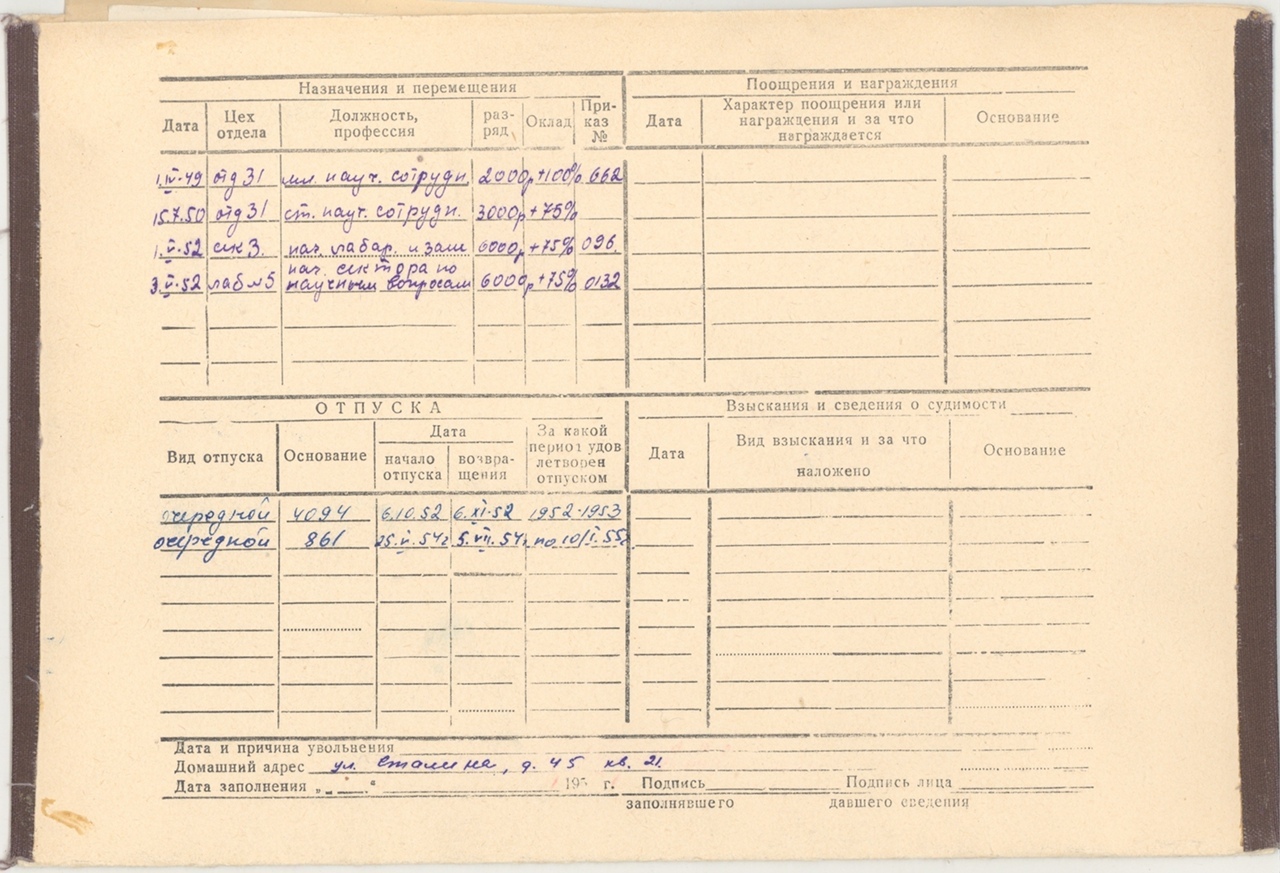 Назначения и перемещения
Поощрения и награждения
Дата Цех отдела Должность, профессия раз-ряд Оклад При-каз №
Дата Характер поощрения или награждения и за что награждается Основание
1.IV-49 отд 31 мл. науч. сотрудн. 2000р +100% 662
15.7.50 отд 31 ст. науч. сотрудн. 3000р +75%
1.V-52 сек 3. нач. лабор. и зам 6000р +75% 096.
3.V-52 лаб №5 нач. сектора по научным вопросам 6000р +75% 0132
ОТПУСКА
Взыскания и сведения о судимости
Вид отпуска Основание Дата начало отпуска возвра-щения За какой период удов летворен отпуском
Дата Вид взыскания и за что наложено Основание
очередной 4094 6.10.52 6.XI-52 1952-1953
очередной 861 25.V.54г 5.VII.54г по 10/I.55г
Дата и причина увольнения
Домашний адрес ул. Сталина, д. 45 кв. 21.
Дата заполнения „ “ 195 г. Подпись Подпись лица
заполнявшего давшего сведения